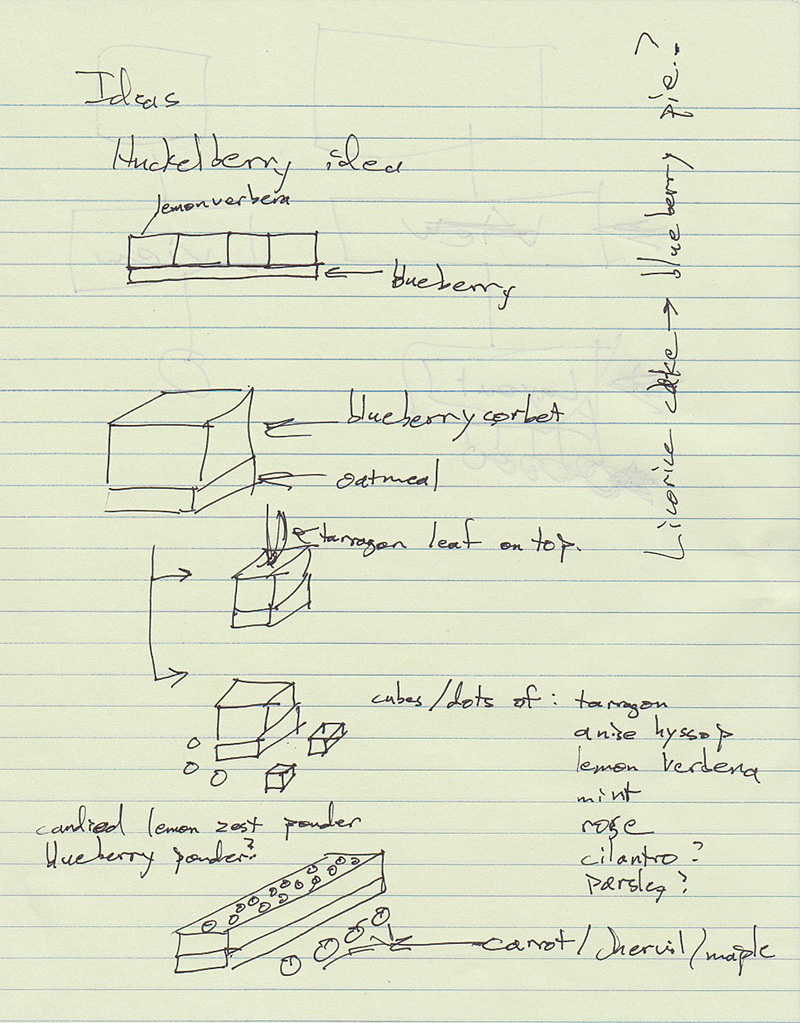 Ideas
Huckelberry idea
lemon verbena
blueberry
blueberry sorbet
oatmeal
tarragon leaf on top.
cubes/dots of: tarragon
anise hyssop
lemon verbena
mint
rose
cilantro?
parsley?
candied lemon zest powder
blueberry powder?
carrot/chervil/maple
Licorice cake → blueberry pie.?